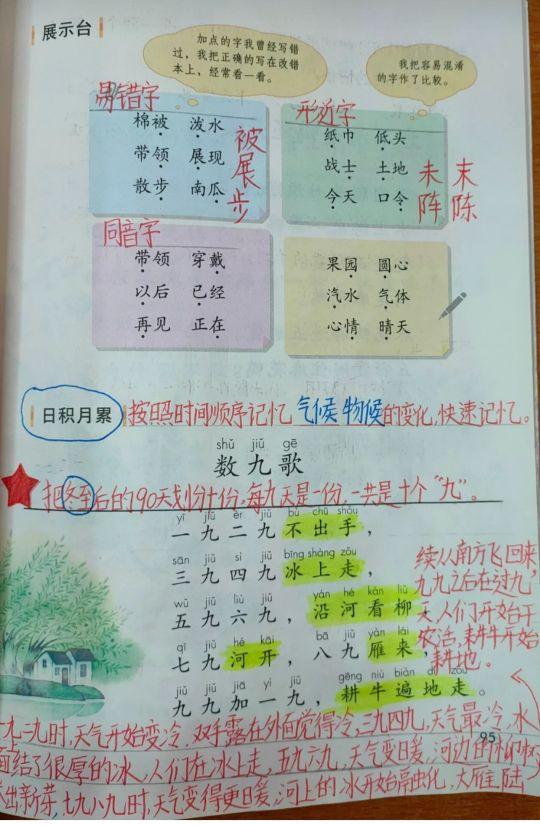 展示台
加点的字我曾经写错
过，我把正确的写在改错
本上，经常看一看。
我把容易混淆
的字作了比较。
易错字
棉被 泼水
带领 展现
散步 南瓜
被展步
形近字
纸巾 低头
战士 土地
今天 口令
未 末
阵 陈
同音字
带领 穿戴
以后 已经
再见 正在
果园 圆心
汽水 气体
心情 晴天
日积月累
按照时间顺序记忆气候物候的变化,快速记忆。
shǔ jiǔ gē
数九歌
把冬至后的90天划分十份,每九天是一份,一共是十个“九”。
yī jiǔ èr jiǔ bù chū shǒu
一九二九不出手，
sān jiǔ sì jiǔ bīng shàng zǒu
三九四九冰上走，
wǔ jiǔ liù jiǔ yán hé kàn liǔ
五九六九，沿河看柳，
qī jiǔ hé kāi bā jiǔ yàn lái
七九河开，八九雁来，
jiǔ jiǔ jiā yī jiǔ gēng niú biàn dì zǒu
九九加一九，耕牛遍地走。
续从南方飞回来,
九九之后在过九
天,人们开始干
农活,耕牛开始
耕地。
95
一九二九时,天气开始变冷,双手露在外面觉得冷,三九四九,天气最冷,水
面结了很厚的冰,人们在冰上走,五九六九,天气变暖,河边的柳树
出新芽,七九八九时,天气变得更暖,河上的冰开始融化,大雁陆